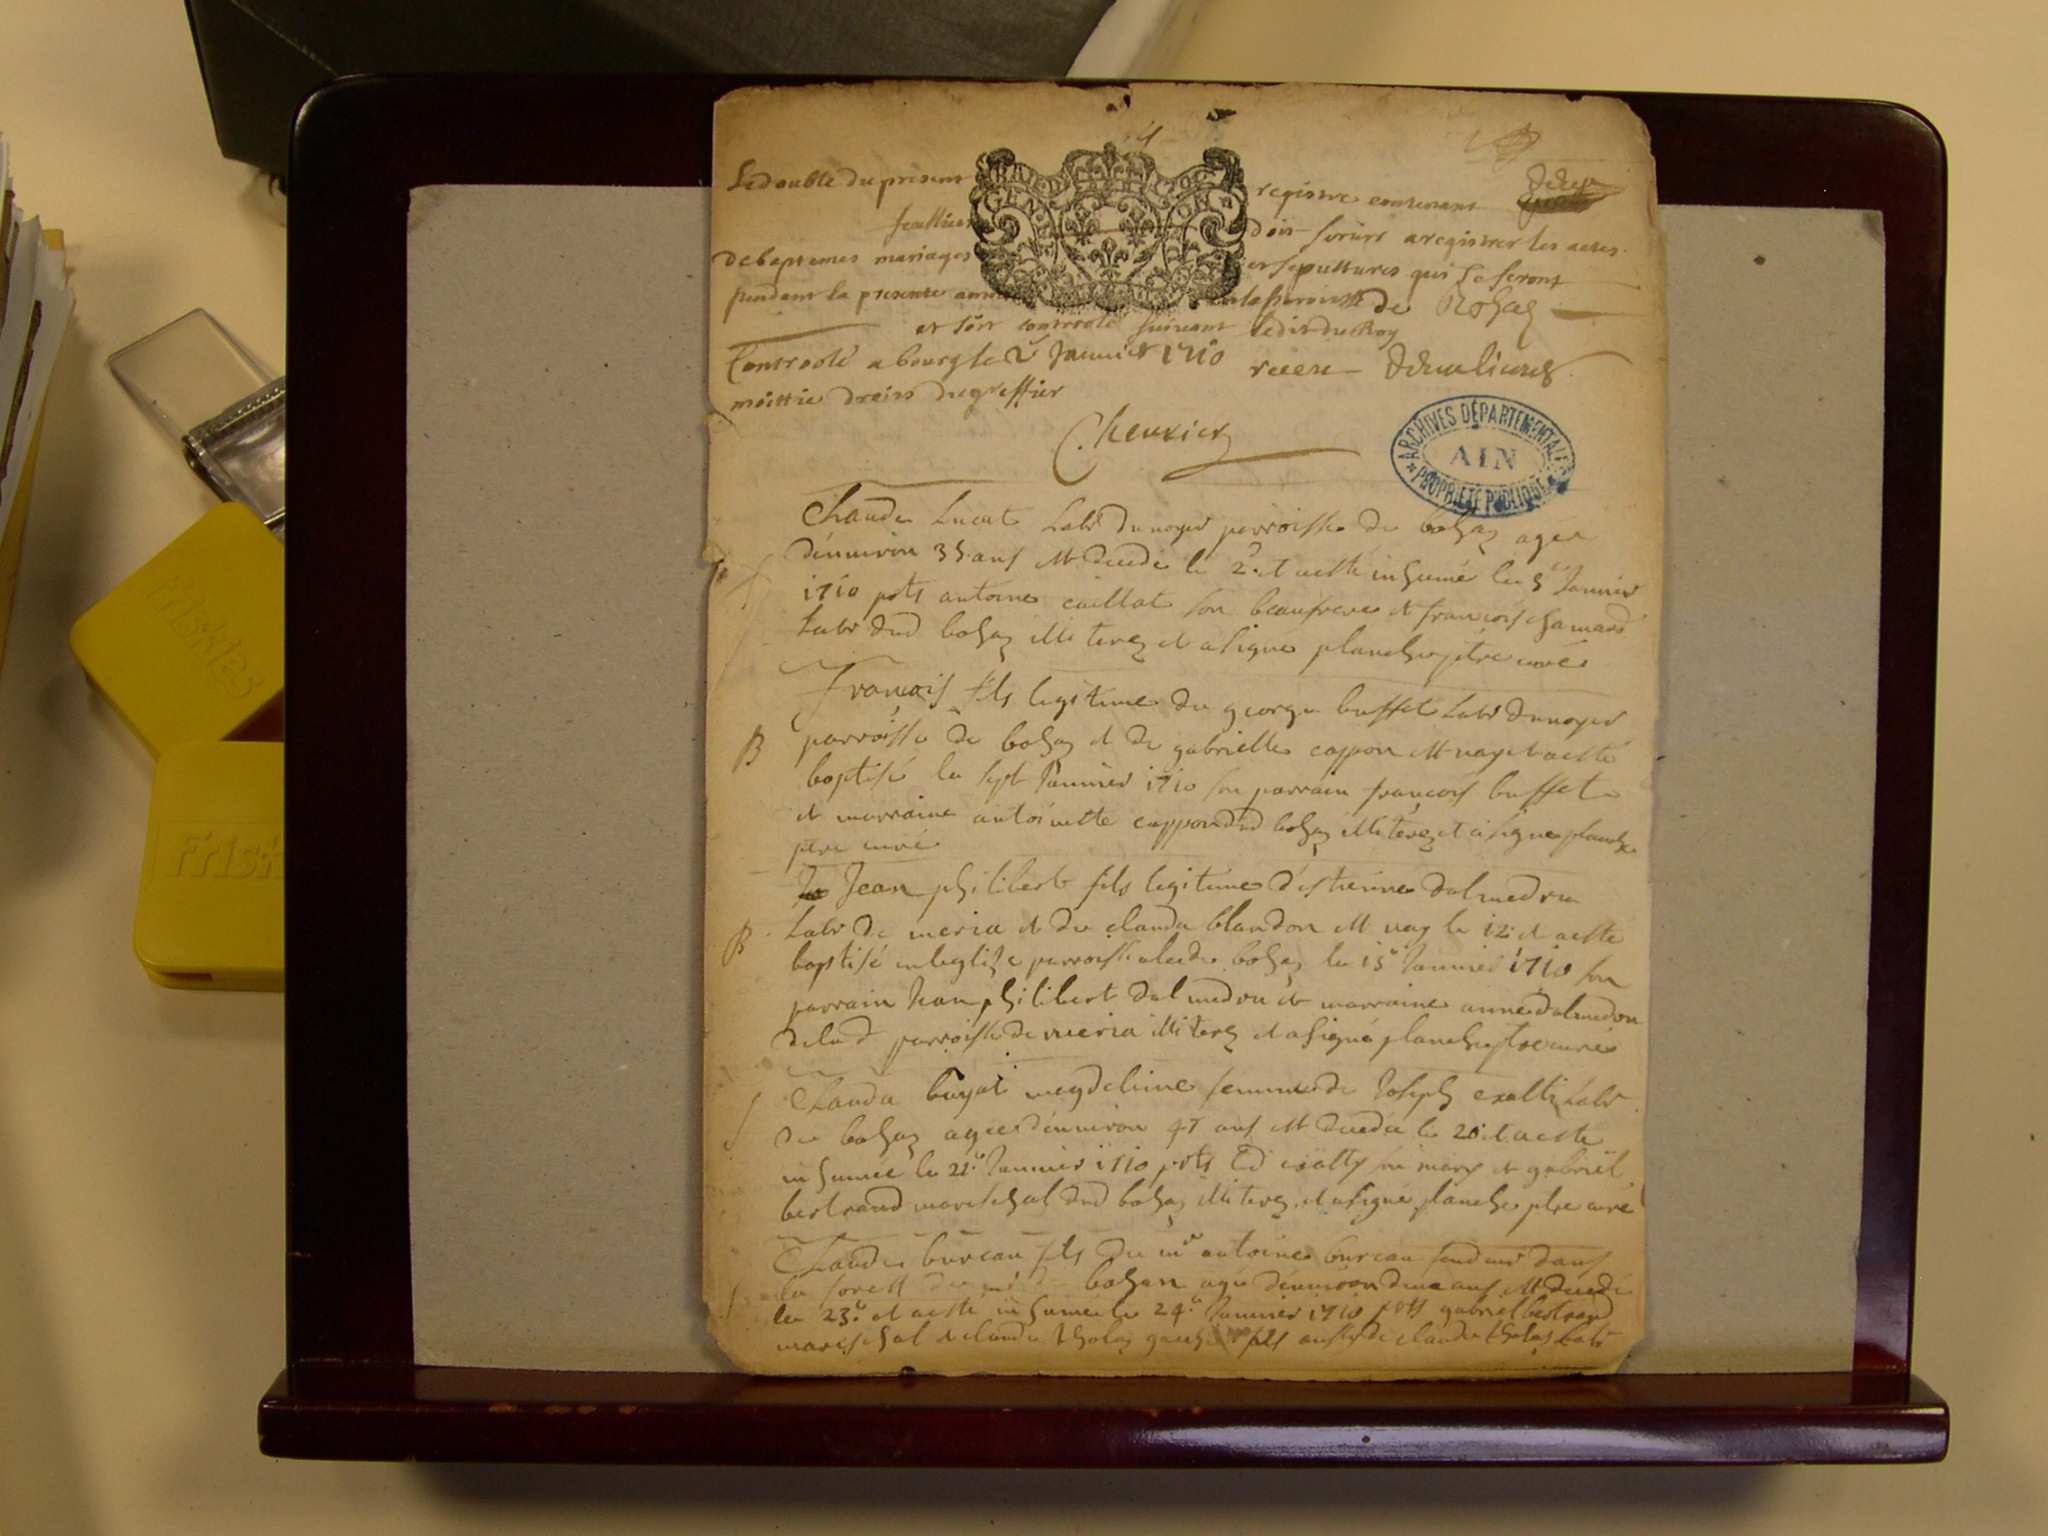 Le double du present registre contenant
feuillets doit servir a registrer les actes
de baptemes mariages et sepultures qui se feront
pendant la presente année en la parroisse de Bohaz
et sera controolé suivant ledit du Roy
Controolé a bourg le 2e Janvier 1710 receu
moittie droits du greffier
Chevrier
GEN
ARCHIVES DÉPARTEMENTALES
AIN
* PROPRIÉTÉ PUBLIQUE *
Claude Lucat Labr du noyer parroisse de bohaz agee
d'environ 35 ans est decede le 2e et a esté inhumé le 3e Janvier
1710 pnts antoine caillat son beaufrere et francois chamard
Labr dud bohaz illiterez et a signé planche ptre curé
francois fils legitime de george buffet Labr du noyer
B parroisse de bohaz et de gabrielle coppon est nay et a esté
baptisé le sept Janvier 1710 son parrain francois buffet
et marraine antoinette coppon dud bohaz illiterez et a signe planche
ptre curé
Jean philibert fils legitime d'estienne dalmedon
B Labr de meria et de claude blandon est nay le 12e et a esté
baptisé en leglize parroissiale de bohaz le 15e Janvier 1710 son
parrain Jean philibert dalmedon et marraine anne dalmedon
de lad parroisse de meria illiterez et a signé planche ptre curé
S Clauda bayat megdeleine femme de Joseph exalti Labr
de bohaz agee d'environ 47 ans est decedée le 20e et a esté
inhumée le 21e Janvier 1710 pnts led exalty son mary et gabriel
bertrand mareschal dud bohaz illiterez et a signé planche ptre curé
Claude bureau fils de me antoine bureau fendeur dans
S la forest bohan agé d'environ deux ans est decedé
le 23e et a esté inhumé le 24e Janvier 1710 pnts gabriel bertrand
mareschal et claude tholaz fils de claude tholaz Labr
Friskies
Frisk